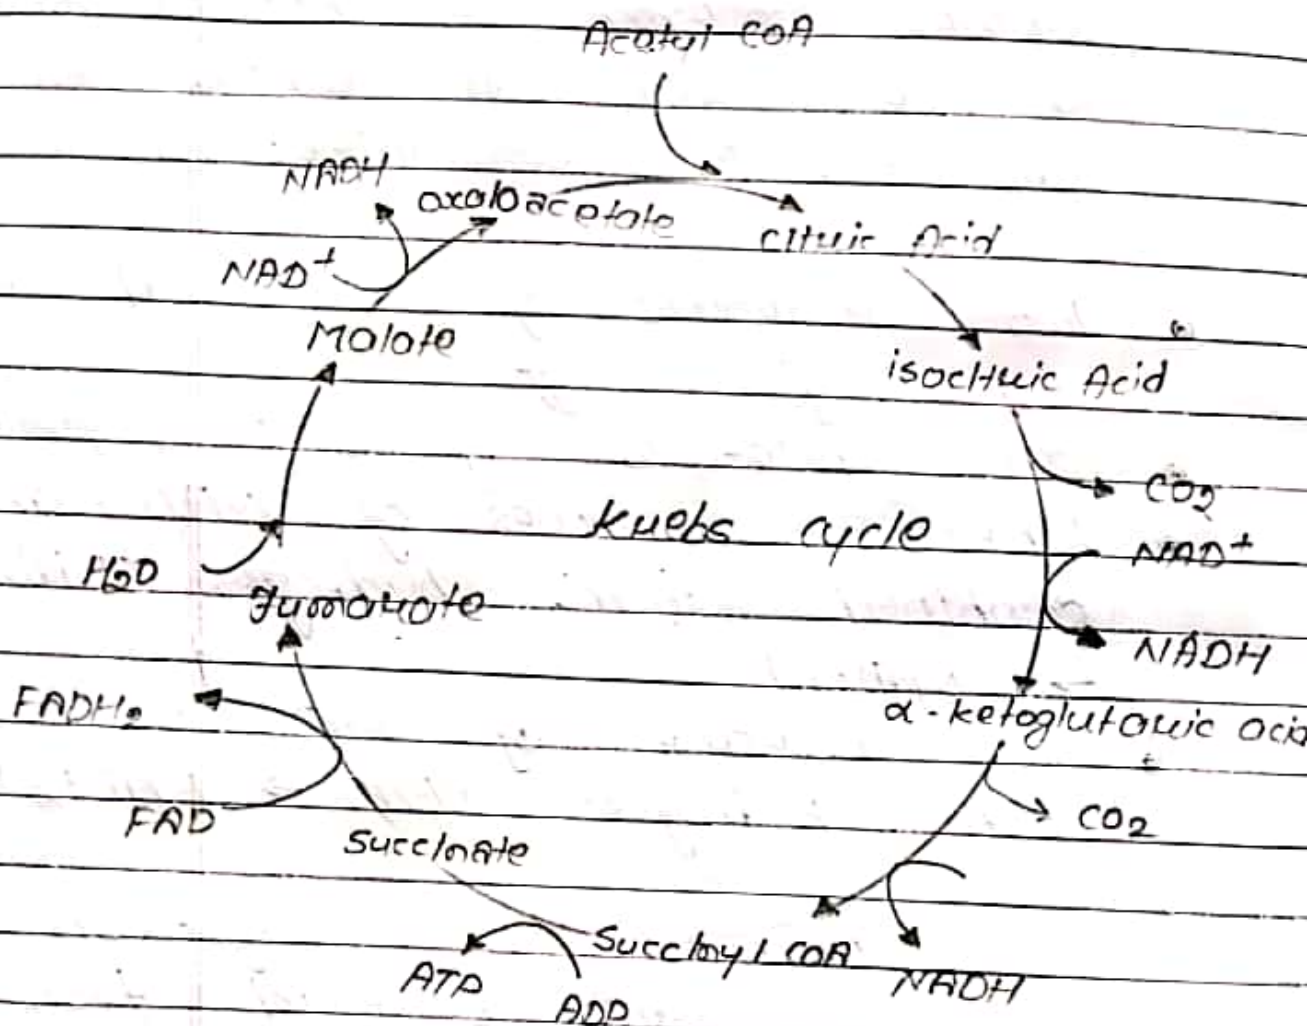 Acetyl COA
NADH
oxaloacetate
citric Acid
NAD+
Malate
isocitric Acid
CO2
krebs cycle
NAD+
H2O
fumarate
NADH
FADH2
α-ketoglutaric acid
CO2
FAD
Succinate
Succinyl COA
ATP
NADH
ADP